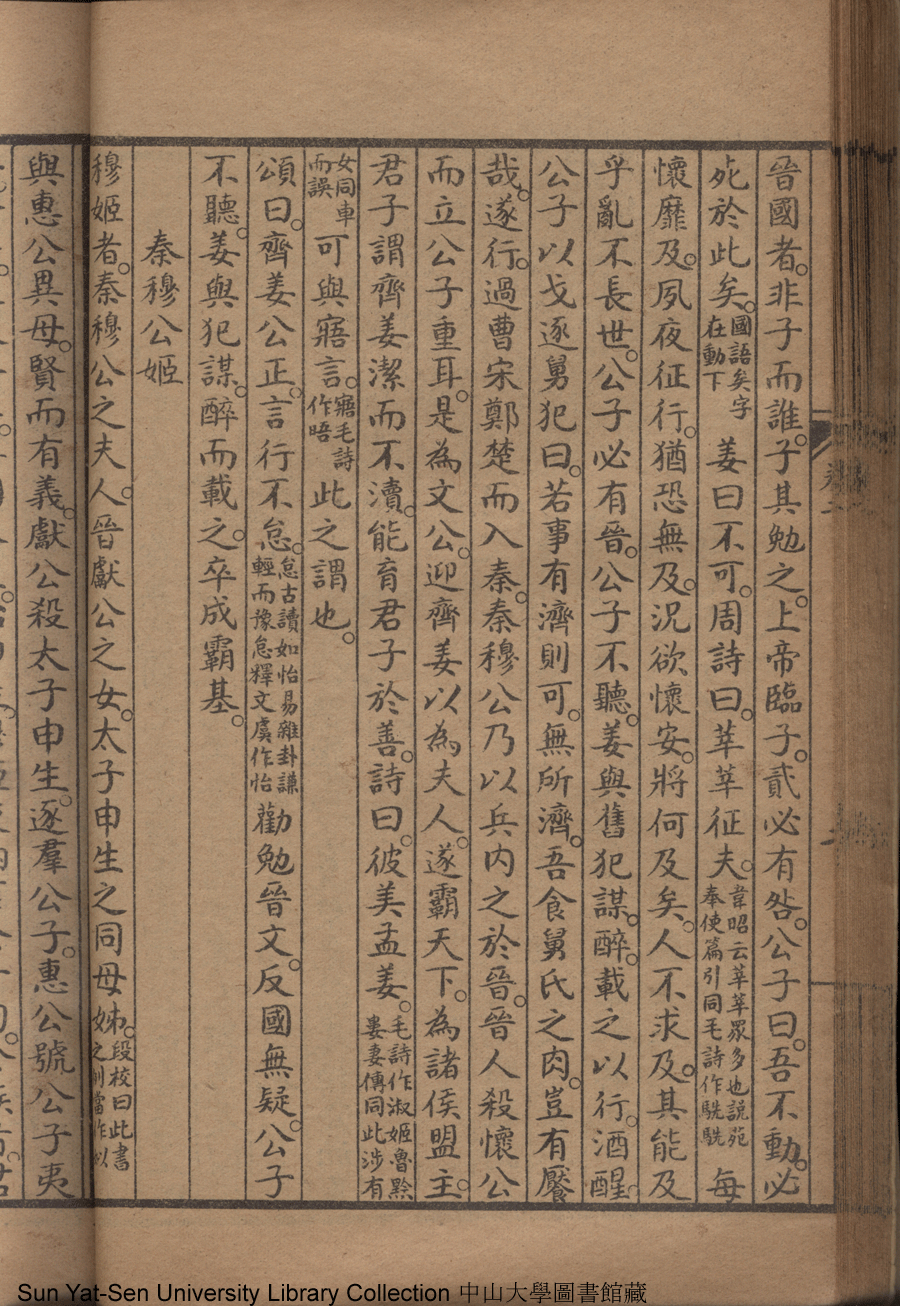 晉國者。非子而誰。子其勉之。上帝臨子。貳必有咎。公子曰。吾不動。必
死於此矣。國語矣字在動下姜曰不可。周詩曰。莘莘征夫。韋昭云莘莘眾多也說苑奉使篇引同毛詩作駪駪每
懷靡及。夙夜征行。猶恐無及。況欲懷安。將何及矣。人不求及。其能及
乎亂不長世。公子必有晉。公子不聽。姜與舊犯謀。醉。載之以行。酒醒。
公子以戈逐舅犯曰。若事有濟則可。無所濟。吾食舅氏之肉。豈有饜
哉。遂行。過曹宋鄭楚而入秦。秦穆公乃以兵內之於晉。晉人殺懷公
而立公子重耳。是為文公。迎齊姜以為夫人。遂霸天下。為諸侯盟主。
君子謂齊姜潔而不瀆。能育君子於善。詩曰。彼美孟姜。毛詩作淑姬魯黔婁妻傳同此涉有
女同車而誤可與寤言。寤毛詩作晤此之謂也。
頌曰。齊姜公正。言行不怠。怠古讀如怡易雜卦謙輕而豫怠釋文虞作怡勸勉晉文。反國無疑。公子
不聽。姜與犯謀。醉而載之。卒成霸基。
秦穆公姬
穆姬者。秦穆公之夫人。晉獻公之女。太子申生之同母姊。段校曰此書之例當作以
與惠公異母。賢而有義。獻公殺太子申生。逐羣公子。惠公號公子夷
Sun Yat-Sen University Library Collection 中山大學圖書館藏